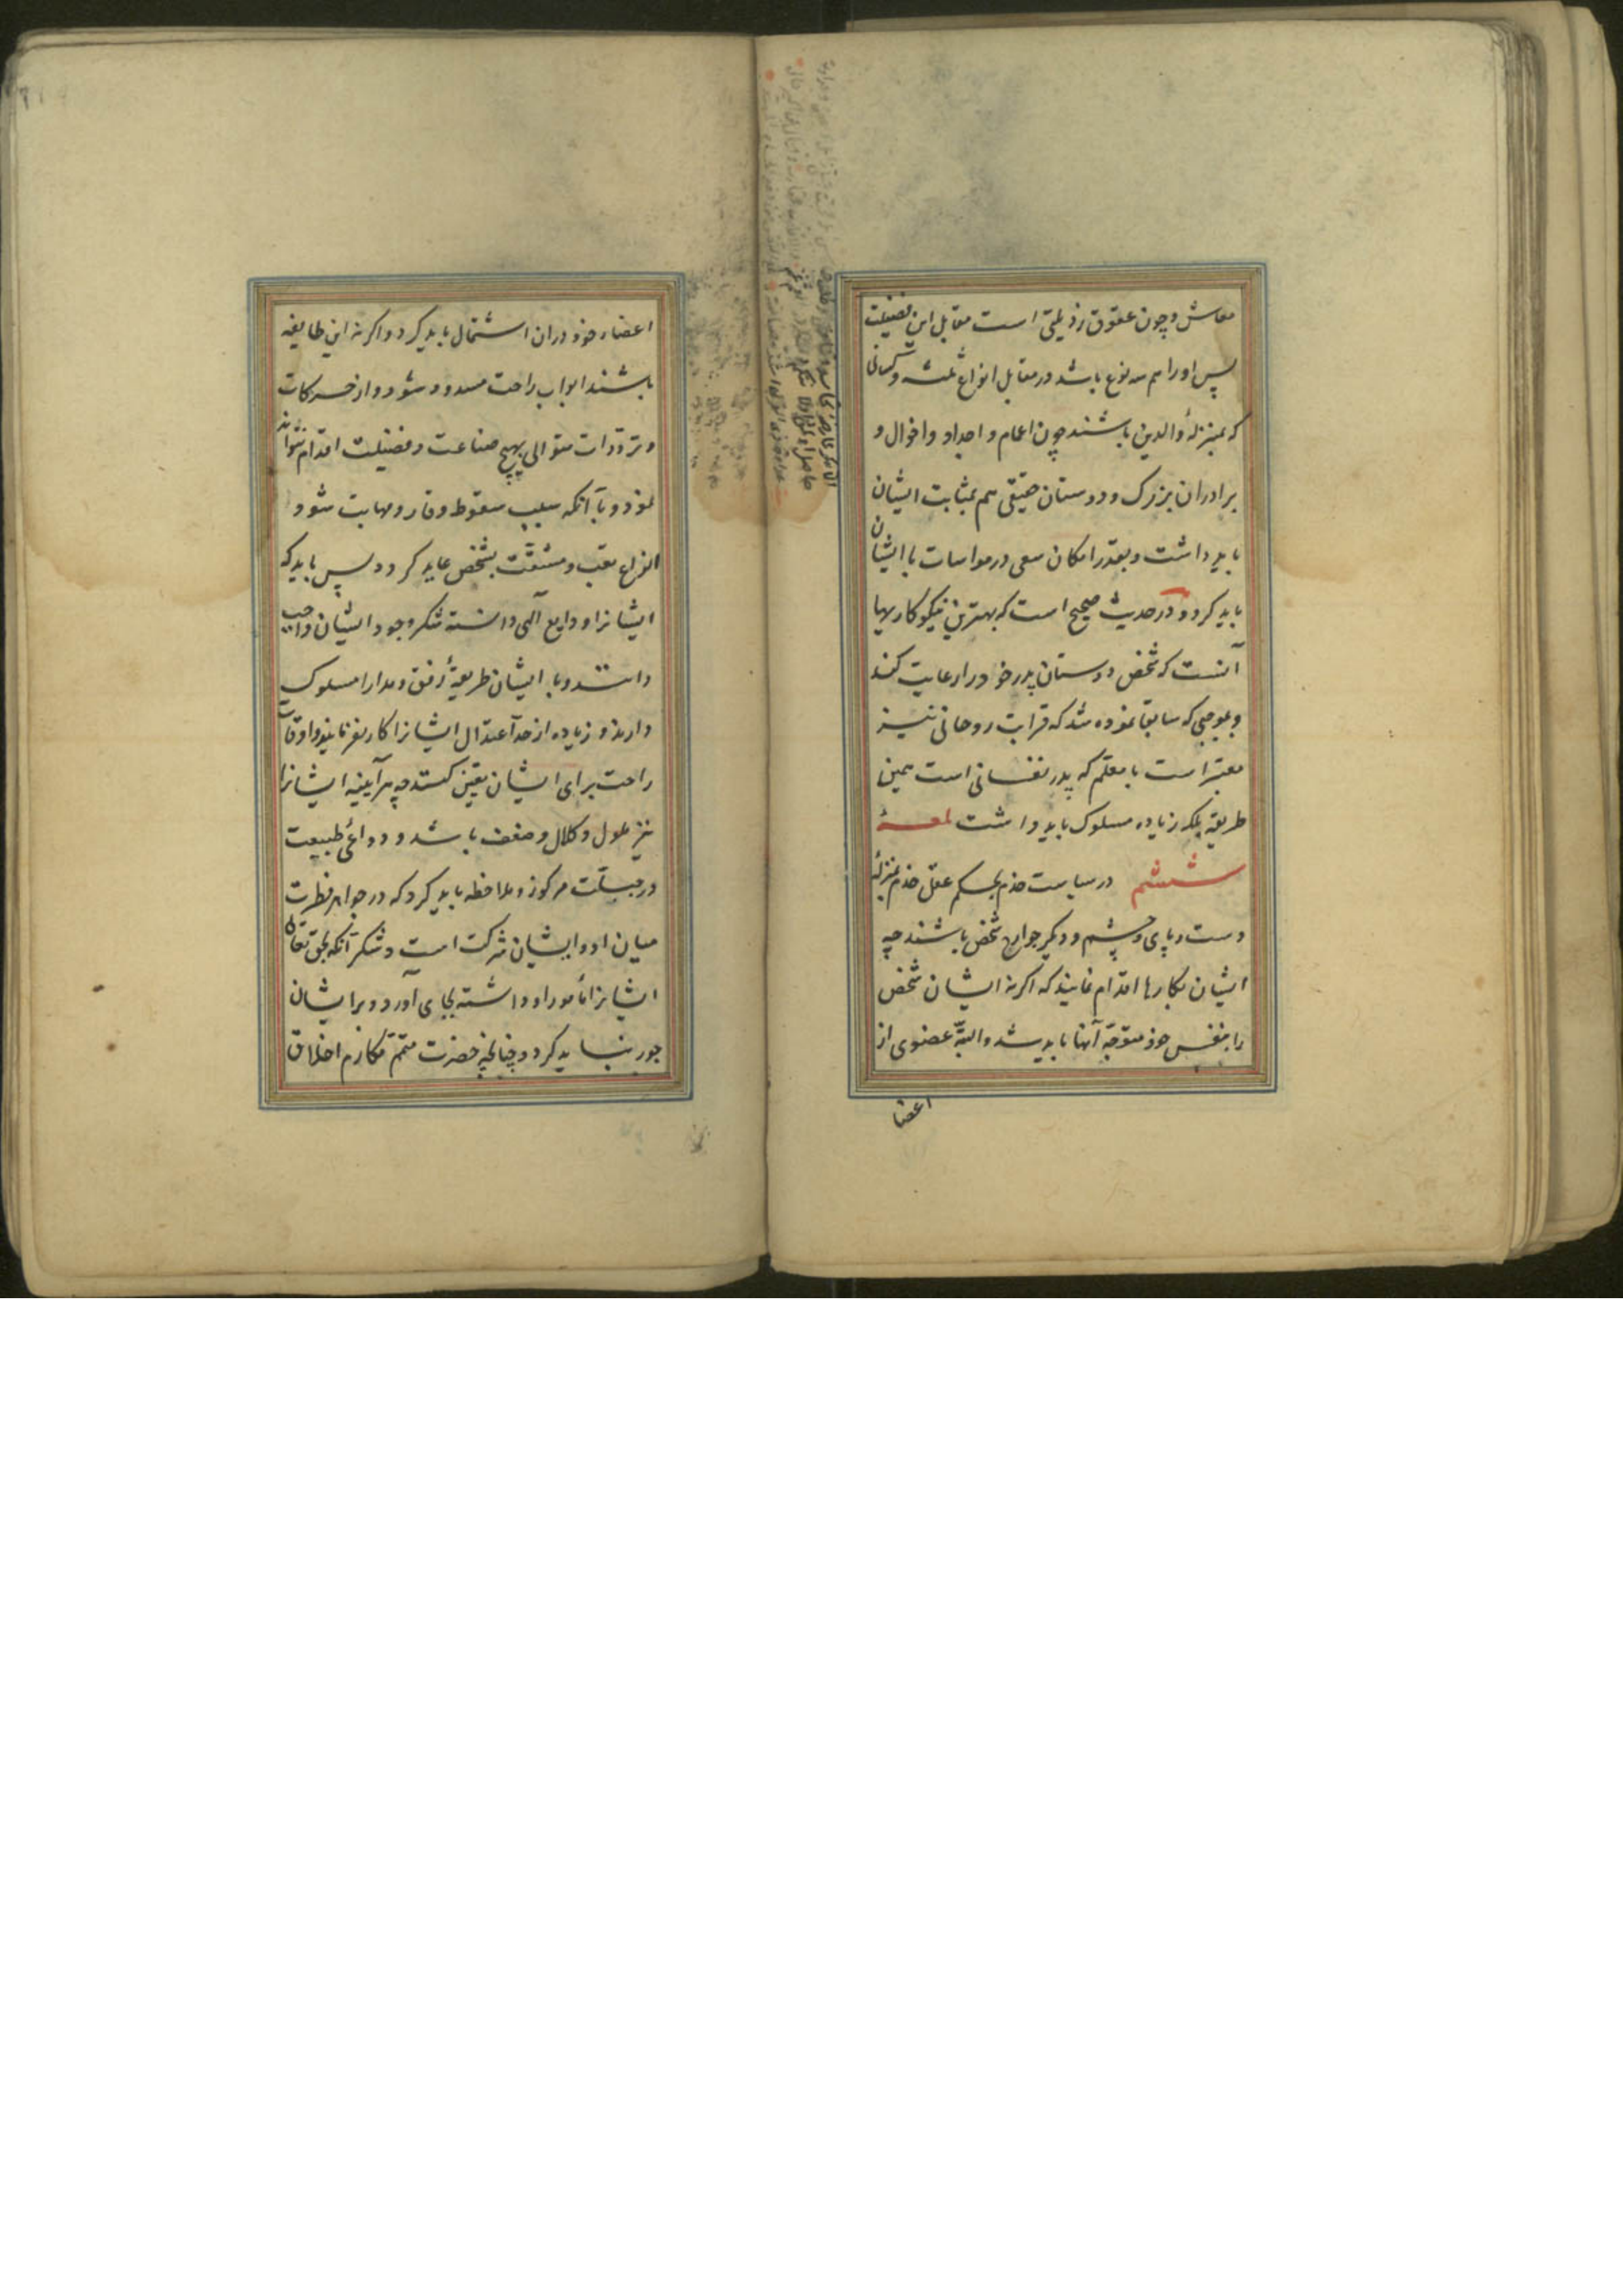 معاش و چون عقوق رذیلتی است مقابل این فضیلت
پس او را هم سه نوع باشد در مقابل انواع ثلثه و کسانی
که بمنزلهٔ والدین باشند چون اعمام و اجداد و اخوال و
برادران بزرک و دوستان حقیقی هم بمثابت ایشان
باید داشت و بقدر امکان سعی در مواسات با ایشان
باید کرد و در حدیث صحیح است که بهترین نیکوکاریها
آنست که شخص دوستان پدر خود را رعایت کند
و بموجبی که سابقا نموده شد که قرابت روحانی نیز
معتبر است با معلم که پدر نفسانی است همین
طریقه بلکه زیاده مسلوک باید داشت لمعهٔ
ششم در سیاست خدم بحکم عقل خدم بمنزلهٔ
دست و پای و چشم و دیکر جوارح شخص باشند چه
ایشان بکارها اقدام نمایند که اکر نه ایشان شخص
را بنفس خود متوجّه آنها باید شد و البتّه عضوی از
اعضا
اعضاء خود دران استعمال باید کرد و اکر نه این طایفه
باشند ابواب راحت مسدود شود و از حرکات
و تردّدات متوالی بهیچ صناعت و فضیلت اقدام نتواند
نمود و با آنکه سبب سقوط وقار و مهابت شود
انواع تعب و مشقّت بشخص عاید کردد پس باید که
ایشانرا ودایع الهی دانسته شکر وجود ایشان واجب
دانند و با ایشان طریقهٔ رفق و مدارا مسلوک
دارند و زیاده از حد اعتدال ایشانرا کار نفرمایند و اوقات
راحت برای ایشان تعیین کنند چه هرآینه ایشانرا
نیز ملول و کلال و ضعف باشد و دواعی طبیعت
در جبلّت مرکوز و ملاحظه باید کرد که در جواهر فطرت
میان او و ایشان شرکت است و شکر آنکه حق تعالی
ایشانرا مأمور او داشته بجای آورد و بر ایشان
جور نباید کرد و چنانچه حضرت متمّم مکارم اخلاق